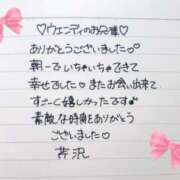 ♡ウェンディのお兄様♡
ありがとうございました♡
朝一でいちゃいちゃできて
幸せでした♡またお会い出来て
すごーく嬉しかったです♪
素敵な時間をありがとう
ございました♡
芹沢